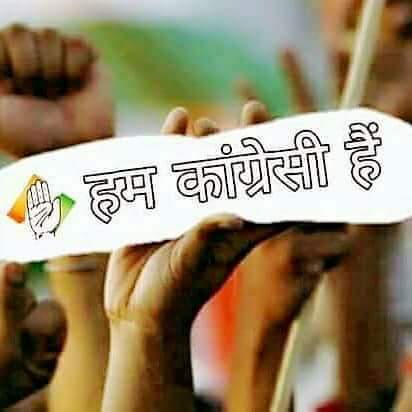 हम कांग्रेसी हैं